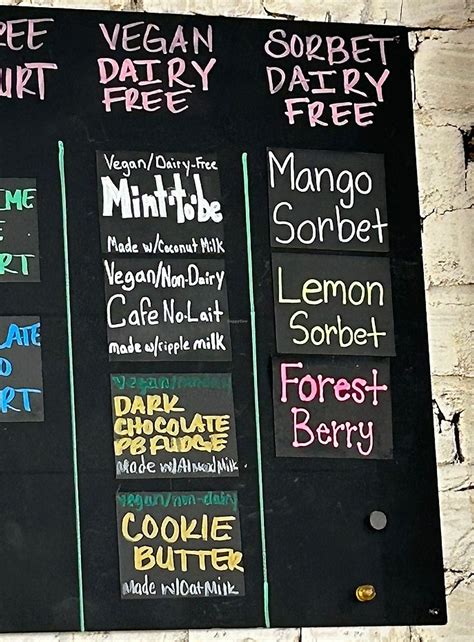 REE
URT
ME
E
RT
LATE
O
RT
VEGAN
DAIRY
FREE
Vegan/Dairy-Free
Mint-to-be
Made w/Coconut Milk
Vegan/Non-Dairy
Cafe No-Lait
made w/ripple milk
DARK
CHOCOLATE
PB FUDGE
Made w/Almond Milk
vegan/non-dairy
COOKIE
BUTTER
Made w/Oat Milk
SORBET
DAIRY
FREE
Mango
Sorbet
Lemon
Sorbet
Forest
Berry